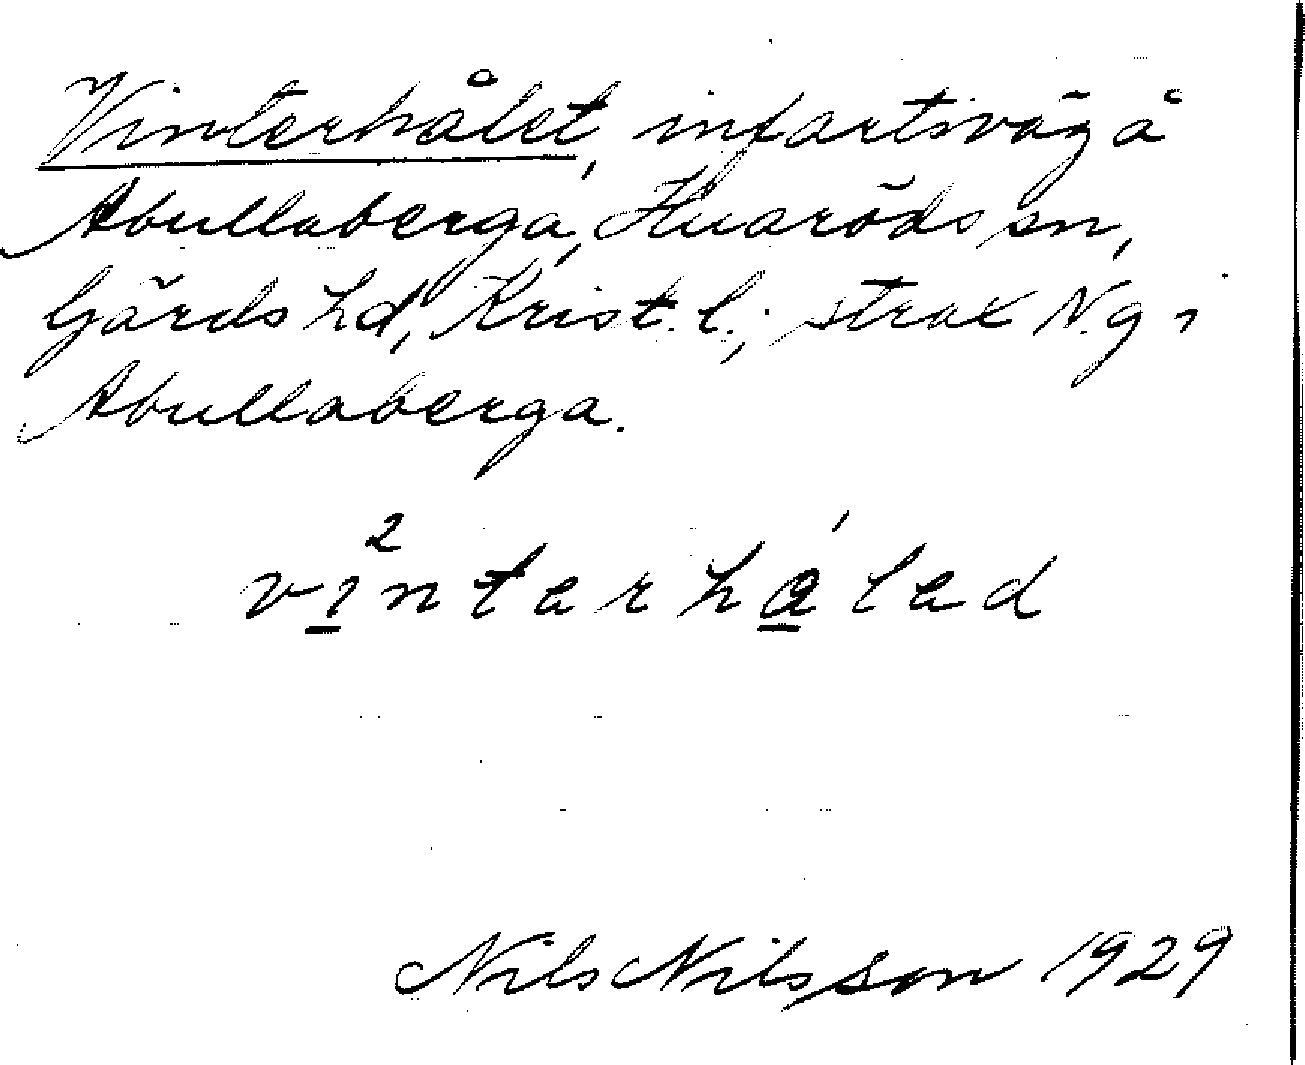 Vinterhålet, infartsväg å
Abullaberga, Huaröds sn,
Gärds hd, Krist. l.; strax N. g i
Abullaberga.
vi²nterhålad
Nils Nilsson 1929